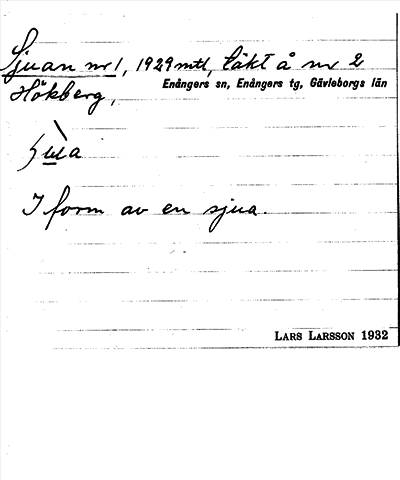 Sjuan nr 1, 1929 mtl, täkt å nr 2
Hökberg,
Enångers sn, Enångers tg, Gävleborgs län
I form av en sjua.
LARS LARSSON 1932